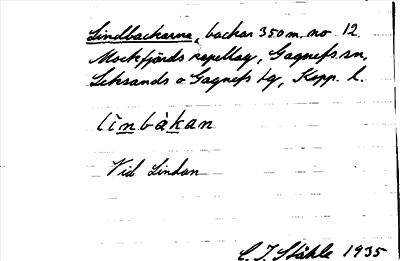 Lindbackarna, backar 350 m. no 12
Mockfjärds kapellag, Gagnefs sn,
Leksands o Gagnefs tg, Kopp. l.
lìnbàkan
Vid Lindan
C. I. Ståhle 1935